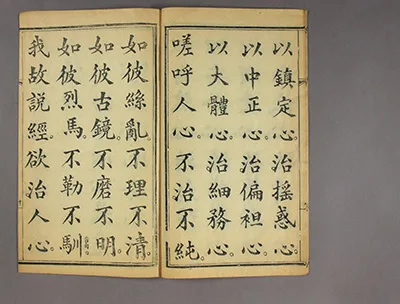 以鎮定心。治搖惑心。
以中正心。治偏袒心。
以大體心。治細務心。
嗟呼人心。不治不純。
如彼絲亂。不理不清。
如彼古鏡。不磨不明。
如彼烈馬。不勒不馴
我故說經。欲治人心。